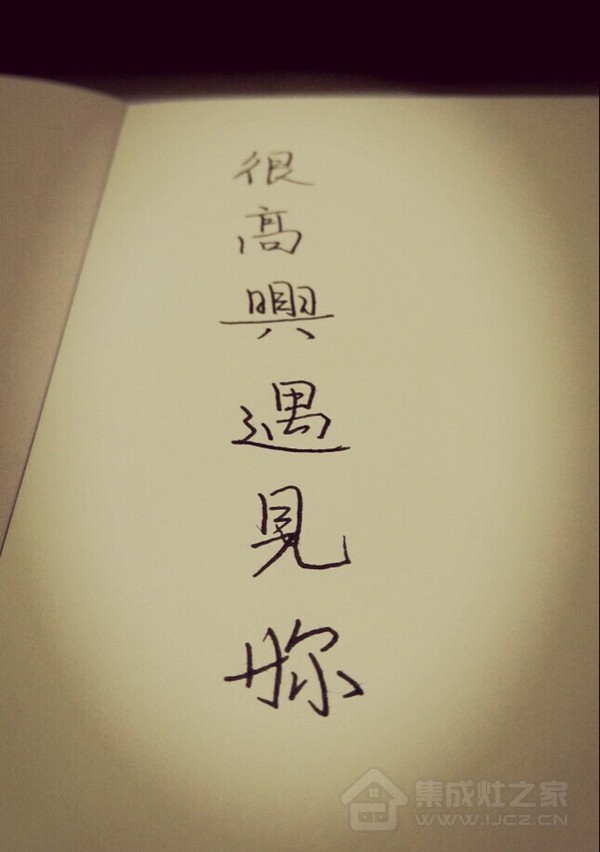 很高興遇見妳
集成灶之家
WWW.IJCZ.CN